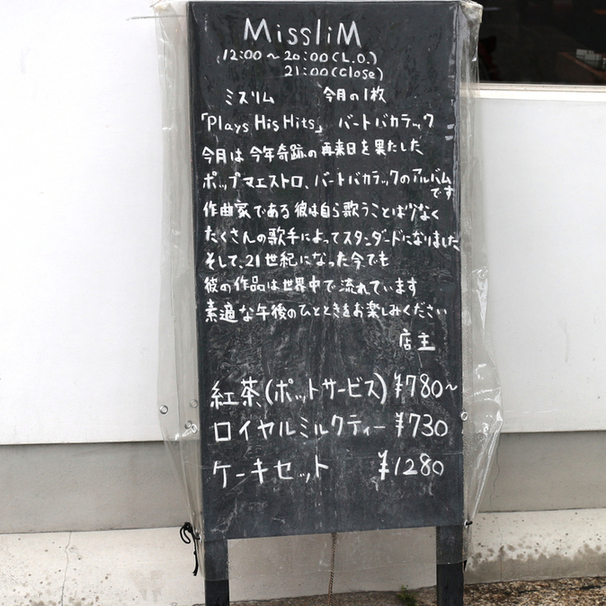 MissliM
12:00～20:00(L.O.)
21:00(Close)
ミスリム 今月の1枚
「Plays His Hits」 バートバカラック
今月は今年奇跡の再来日を果たした
ポップマエストロ、バートバカラックのアルバム
です
作曲家である彼は自ら歌うことは少なく
たくさんの歌手によってスタンダードになりました
そして、21世紀になった今でも
彼の作品は世界中で流れています
素適な午後のひとときをお楽しみください
店主
紅茶(ポットサービス) ¥780～
ロイヤルミルクティー ¥730
ケーキセット ¥1280